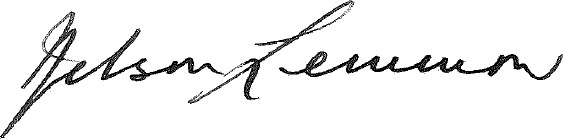 Nelson Lemmon